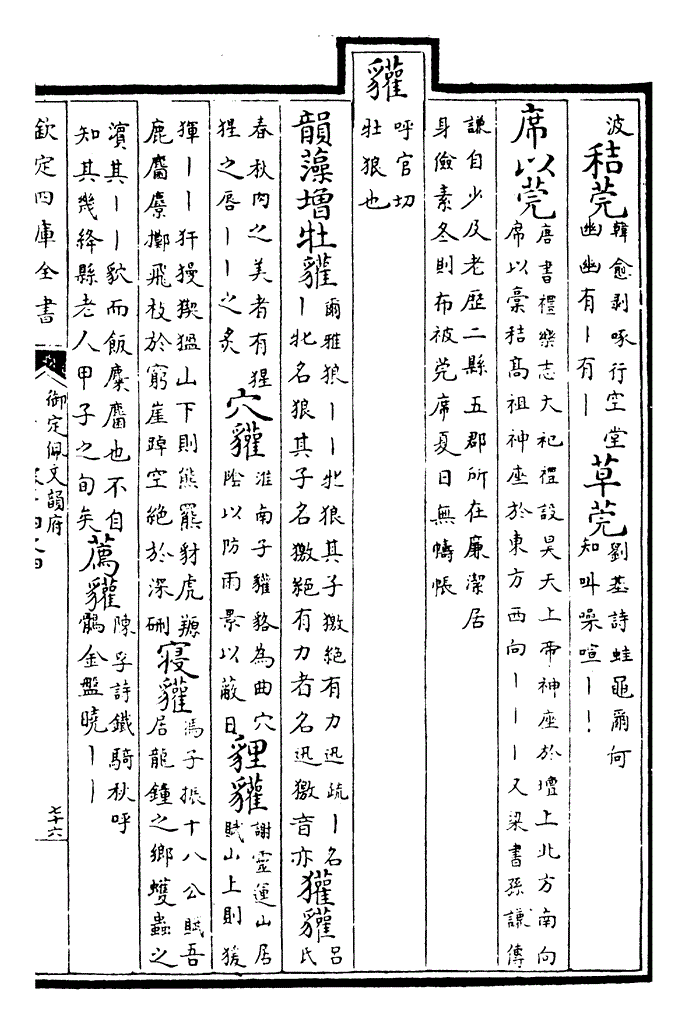 波秸莞韓愈剥啄行空堂
幽幽有丨有丨草莞劉基詩蛙黽爾何
知叫噪喧丨丨
席以莞唐書禮樂志大祀禮設昊天上帝神座於壇上北方南向
席以藁秸髙祖神座於東方西向丨丨丨又梁書孫謙傳
謙自少及老歴二縣五郡所在廉潔居
身儉素冬則布被莞席夏日無幬帳
貛呼官切
牡狼也
韻藻増牡貛爾雅狼丨丨牝狼其子獥絶有力迅疏丨名
丨牝名狼其子名獥絶有力者名迅獥音亦獾貛吕氏
春秋肉之美者有猩
猩之唇丨丨之炙穴貛淮南子貛貉為曲穴
陰以防雨景以蔽日貍貛謝靈運山居
賦山上則猨
獋丨丨犴獌猰猛山下則熊羆豺虎羱
鹿麕麖擲飛枝於窮崖踔空絶於深硎寢貛馮子振十八公賦吾
居龍鐘之鄉蠖蟲之
濱其丨丨豰而飯麋麕也不自
知其幾絳縣老人甲子之旬矣薦貛陳孚詩鐵騎秋呼
鶻金盤曉丨丨
欽定四庫全書
御定佩文韻府
七十六